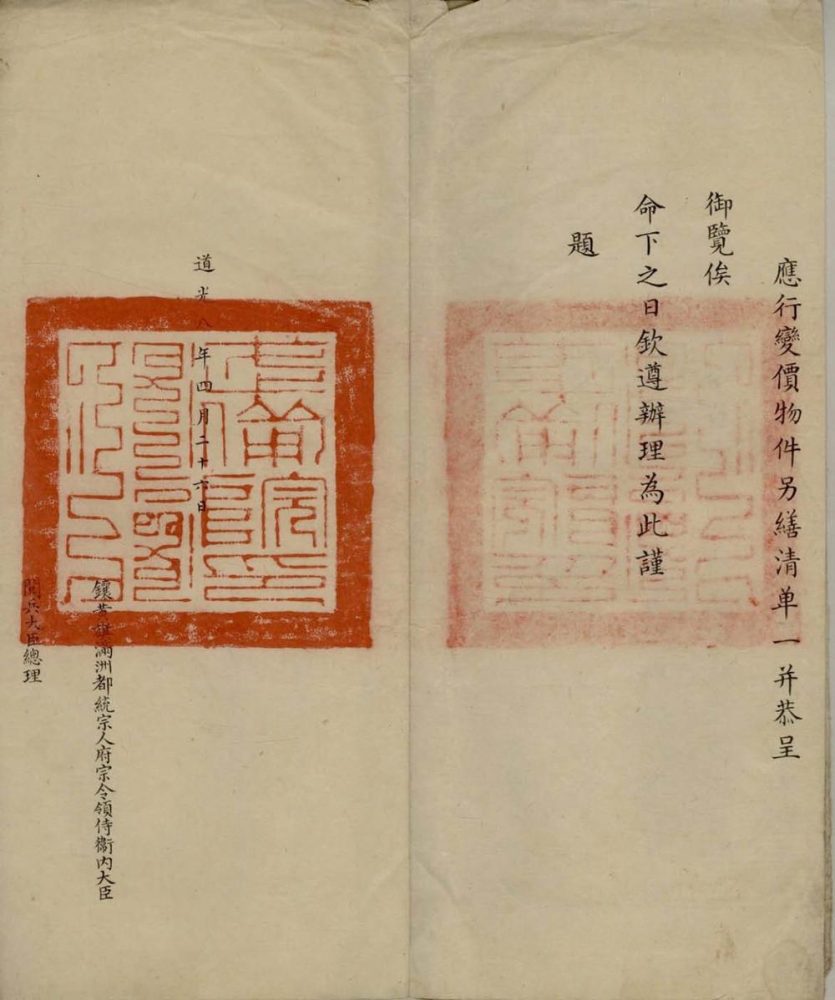 應行變價物件另繕清单一并恭呈
御覽俟
命下之日欽遵辦理為此謹
題
道光八年四月二十六日
鑲黃旗滿洲都統宗人府宗令領侍衛內大臣
閱兵大臣總理